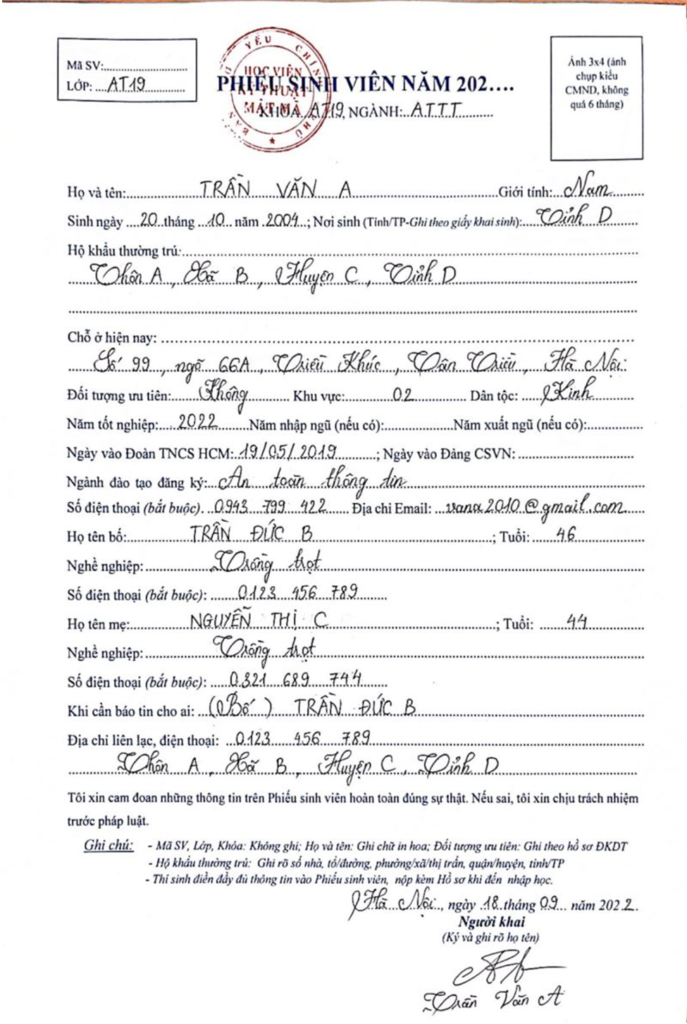 Mã SV:
LỚP: AT19
BAN CƠ YẾU CHÍNH PHỦ
HỌC VIỆN
KỸ THUẬT
MẬT MÃ
PHIẾU SINH VIÊN NĂM 202....
KHOÁ AT19, NGÀNH: ATTT
Ảnh 3x4 (ảnh
chụp kiểu
CMND, không
quá 6 tháng)
Họ và tên: TRẦN VĂN A Giới tính: Nam
Sinh ngày 20 tháng 10 năm 2004; Nơi sinh (Tỉnh/TP-Ghi theo giấy khai sinh): Tỉnh D
Hộ khẩu thường trú:
Thôn A, Xã B, Huyện C, Tỉnh D
Chỗ ở hiện nay:
Số 99, ngõ 66A, Triều Khúc, Tân Triều, Hà Nội
Đối tượng ưu tiên: Không Khu vực: 02 Dân tộc: Kinh
Năm tốt nghiệp: 2022 Năm nhập ngũ (nếu có): Năm xuất ngũ (nếu có):
Ngày vào Đoàn TNCS HCM: 19/05/2019; Ngày vào Đảng CSVN:
Ngành đào tạo đăng ký: An toàn thông tin
Số điện thoại (bắt buộc). 0943 799 422 Địa chỉ Email: vana2010@gmail.com
Họ tên bố: TRẦN ĐỨC B; Tuổi: 46
Nghề nghiệp: Trồng trọt
Số điện thoại (bắt buộc): 0123 456 789
Họ tên mẹ: NGUYỄN THỊ C; Tuổi: 44
Nghề nghiệp: Trồng trọt
Số điện thoại (bắt buộc): 0321 689 744
Khi cần báo tin cho ai: (Bố) TRẦN ĐỨC B
Địa chỉ liên lạc, điện thoại: 0123 456 789
Thôn A, Xã B, Huyện C, Tỉnh D
Tôi xin cam đoan những thông tin trên Phiếu sinh viên hoàn toàn đúng sự thật. Nếu sai, tôi xin chịu trách nhiệm
trước pháp luật.
Ghi chú: - Mã SV, Lớp, Khóa: Không ghi; Họ và tên: Ghi chữ in hoa; Đối tượng ưu tiên: Ghi theo hồ sơ ĐKDT
- Hộ khẩu thường trú: Ghi rõ số nhà, tổ/đường, phường/xã/thị trấn, quận/huyện, tỉnh/TP
- Thí sinh điền đầy đủ thông tin vào Phiếu sinh viên, nộp kèm Hồ sơ khi đến nhập học.
Hà Nội, ngày 18 tháng 09 năm 2022
Người khai
(Ký và ghi rõ họ tên)
Trần Văn A